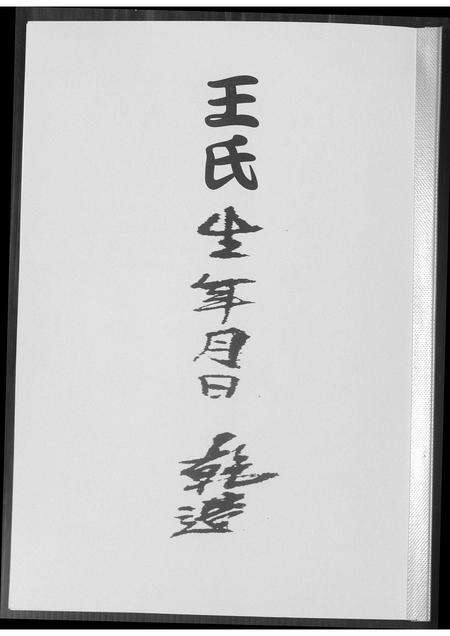 王氏生年月日 乾造